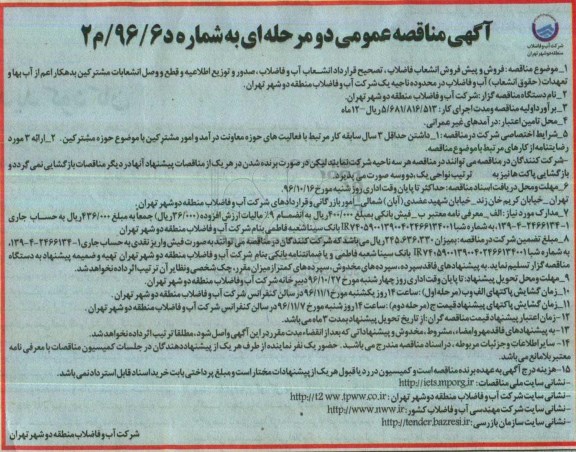 شرکت آب و فاضلاب
منطقه دو شهر تهران
آگهی مناقصه عمومی دو مرحله ای به شماره د۹۶/۶/م۲
۱_ موضوع مناقصه : فروش و پیش فروش انشعاب فاضلاب ، تصحیح قرارداد انشعاب آب و فاضلاب ، صدور و توزیع اطلاعیه و قطع و وصل انشعابات مشترکین بدهکار اعم از آب بها و
تعهدات (حقوق انشعاب) آب و فاضلاب در محدوده ناحیه یک شرکت آب و فاضلاب منطقه دو شهر تهران.
۲_ نام دستگاه مناقصه گزار :شرکت آب و فاضلاب منطقه دو شهر تهران.
۳_ برآورد اولیه مناقصه ومدت اجرای کار : ۵/۶۸۱/۸۱۶/۵۱۳ ریال -۱۲ماه
۴_ محل تامین اعتبار :درآمدهای غیر عمرانی.
۵_ شرایط اختصاصی شرکت در مناقصه : ۱_داشتن حداقل ۳ سال سابقه کار مرتبط با فعالیت های حوزه معاونت درآمد و امور مشترکین با موضوع حوزه مشترکین . ۲_ ارائه ۳ مورد
رضایتنامه از کارهای مرتبط با موضوع مناقصه.
-شرکت کنندگان در مناقصه می توانند در مناقصه هر سه ناحیه شرکت نمایند لیکن در صورت برنده شدن در هر یک از مناقصات پیشنهاد آنها در دیگر مناقصات بازگشایی نمی گردد و
بازگشایی پاکت ها نیز به ترتیب نواحی یک، دو و سه صورت می پذیرد.
۶_مهلت ومحل دریافت اسناد مناقصه: حداکثر تا پایان وقت اداری روز شنبه مورخ ۹۶/۱۰/۱۶.
تهران، خیابان کریم خان زند، خیابان شهید عضدی (آبان) شمالی_ امور بازرگانی و قراردادهای شرکت آب و فاضلاب منطقه دو شهر تهران.
۷_مدارک مورد نیاز : الف _معرفی نامه معتبر ب_ فیش بانکی بمبلغ ۴۰۰/۰۰۰ ریال به انضمام ۹٪ مالیات ارزش افزوده (۳۶/۰۰۰ ریال) جمعا به مبلغ ۴۳۶/۰۰۰ ریال به حساب جاری
۱-۲۴۶۶۱۳۴-۴-۱۳۹، به شماره شبا بانک سینا شعبه فاطمی بنام شرکت آب و فاضلاب منطقه دو شهر تهران
۸_ مبلغ تضمین شرکت در مناقصه: بمیزان ۲۴۵.۶۳۶.۳۳۰ ریال می باشد که شرکت کنندگان در مناقصه می توانند به صورت فیش واریز نقدی به حساب جاری ۱-۲۴۶۶۱۳۴-۴-۱۳۹،
به شماره شبا بانک سینا شعبه فاطمی و یا ضمانتنامه بانکی بنام شرکت آب و فاضلاب منطقه دو شهر تهران تهیه وضمیمه پیشنهاد به دستگاه
مناقصه گزار تسلیم نماید. به پیشنهادهای فاقد سپرده، سپرده های مخدوش، سپرده های کمتر از میزان مقرر، چک شخصی و نظایر آن ترتیب اثر داده نخواهد شد.
۹_ مهلت و محل تحویل پیشنهاد: تا پایان وقت اداری روز چهار شنبه مورخ ۹۶/۱۰/۲۷ دبیرخانه شرکت آب و فاضلاب منطقه دو شهر تهران.
۱۰_ زمان گشایش پاکتهای الف و ب (مرحله اول) : ساعت ۱۴ روز یکشنبه مورخ ۹۶/۱۱/۱ در سالن کنفرانس شرکت آب و فاضلاب منطقه دو شهر تهران.
۱۱_ زمان گشایش پاکتهای پیشنهاد قیمت ج (مرحله دوم) : ساعت ۱۴ روز شنبه مورخ ۹۶/۱۱/۷ در سالن کنفرانس شرکت آب و فاضلاب منطقه دو شهر تهران.
۱۲_ زمان اعتبار پیشنهاد قیمت مناقصه گران :از تاریخ تحویل پیشنهاد بمدت ۳ ماه می باشد.
۱۳_ به پیشنهادهای فاقد مهر وامضاء، مشروط، مخدوش و پیشنهاداتی که بعد از انقضاء مدت مقرر در این آگهی واصل شود، مطلقا ترتیب اثر داده نخواهد شد.
۱۴_ سایر اطلاعات و جزئیات مربوطه ، در اسناد مناقصه مندرج می باشید. حضور یک نفر نماینده از طرف هر یک از پیشنهاد دهندگان در جلسات کمیسیون مناقصات با معرفی نامه
معتبر بلامانع می باشد.
۱۵_ هزینه درج آگهی به عهده برنده مناقصه است و کمیسیون در رد یا قبول هر یک از پیشنهادات مختار است و مبلغ پرداختی بابت خرید اسناد قابل استرداد نمی باشد.
-نشانی سایت ملی مناقصات: http://iets.mporg.ir
-نشانی سایت شرکت آب و فاضلاب منطقه دو شهر تهران: http://t2 ww.tpww.co.ir
-نشانی سایت شرکت مهندسی آب و فاضلاب کشور: http://www.nww.ir
-نشانی سایت سازمان بازرسی: http://tender.bazresi.ir
شرکت آب و فاضلاب منطقه دو شهر تهران